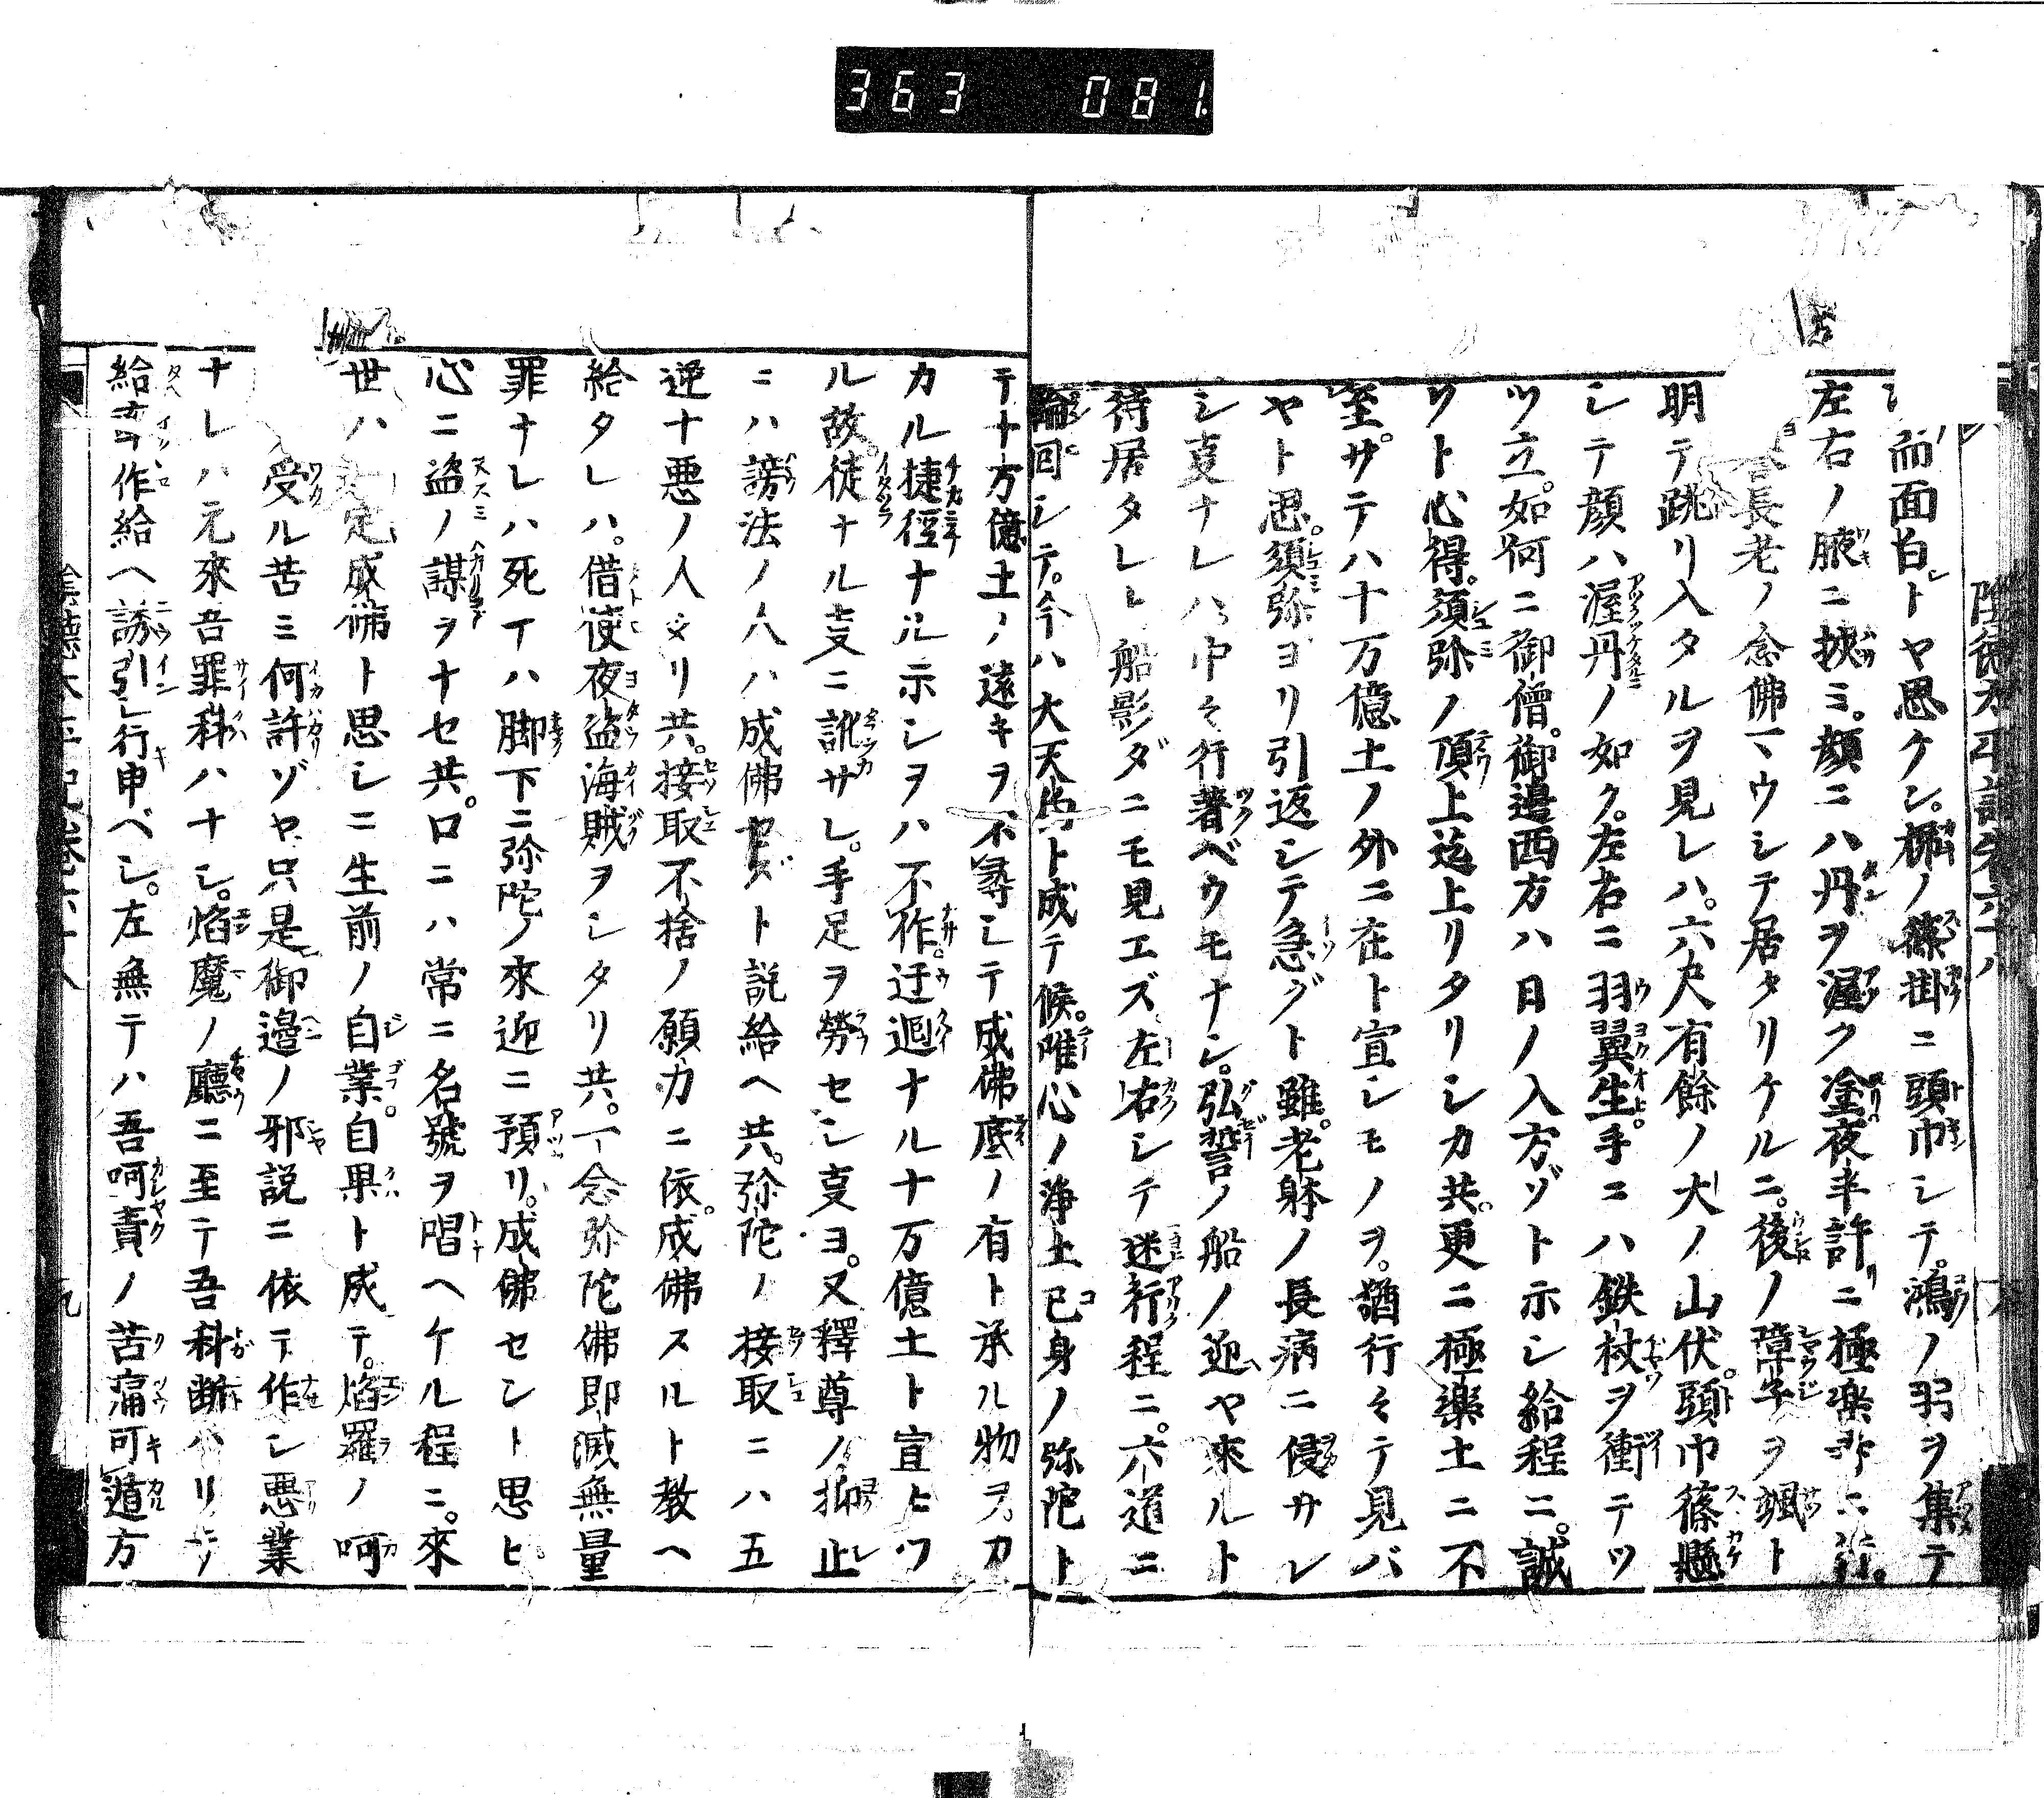 363 081
而面白トヤ思ケン。梛ノ篠掛ニ頭巾シテ。鴻ノ羽ヲ集テ
左右ノ腋ニ挾ミ。顔ニハ丹ヲ渥ク塗夜半許ニ極楽寺ニ行。
長老ノ念佛マウシテ居タリケルニ。後ノ障子ヲ颯ト
明テ跳リ入タルヲ見レハ。六尺有餘ノ大ノ山伏。頭巾篠懸
シテ顔ハ渥丹ノ如ク。左右ニ羽翼生。手ニハ鉄杖ヲ衝テツ
ツ立。如何ニ御僧。御邊西方ハ日ノ入方ゾト示シ給程ニ。誠
ゾト心得。須弥ノ頂上迄上リタリシカ共。更ニ極楽土ニ不
至。サテハ十万億土ノ外ニ在ト宣シモノヲ。猶行々テ見バ
ヤト思。須弥ヨリ引返シテ急グト雖。老躰ノ長病ニ侵サレ
シ叓ナレハ中々行著ベウモナシ。弘誓ノ船ノ迎ヤ來ルト
待居タレト船影ダニモ見エズ左右シテ迷行程ニ。六道ニ
輪回シテ。今ハ大天狗ト成テ候。唯心ノ浄土己身ノ弥陀ト
テ十方億土ノ遠キヲ不尋シテ成佛底ノ有ト承ル物ヲ。カ
カル捷徑ナル示シヲハ不作。迂遐ナル十万億土ト宣ヒツ
ル故。徒ナル叓ニ訛サレ。手足ヲ勞セシ叓ヨ。又釋尊ノ抑止
ニハ謗法ノ人ハ成佛セズト説給ヘ共。弥陀ノ接取ニハ五
逆十悪ノ人タリ共。接取不捨ノ願力ニ依。成佛スルト教ヘ
給タレハ。借使夜盗海賊ヲシタリ共。一念弥陀佛即滅無量
罪ナレハ死テハ脚下ニ弥陀ノ來迎ニ預リ。成佛セント思ヒ。
心ニ盗ノ謀ヲナセ共。口ニハ常ニ名號ヲ唱ヘケル程ニ。來
世ハ定成佛ト思シニ生前ノ自業。自果ト成テ。焰羅ノ呵
受ル苦ミ何許ゾヤ只是御邊ノ邪説ニ依テ作シ悪業
ナレハ元來吾罪科ハナシ。焰魔ノ廳ニ至テ吾科斷ハリヲ
給ヲ作給ヘ誘引シ行申ベシ。左無テハ吾呵責ノ苦痛可遁方